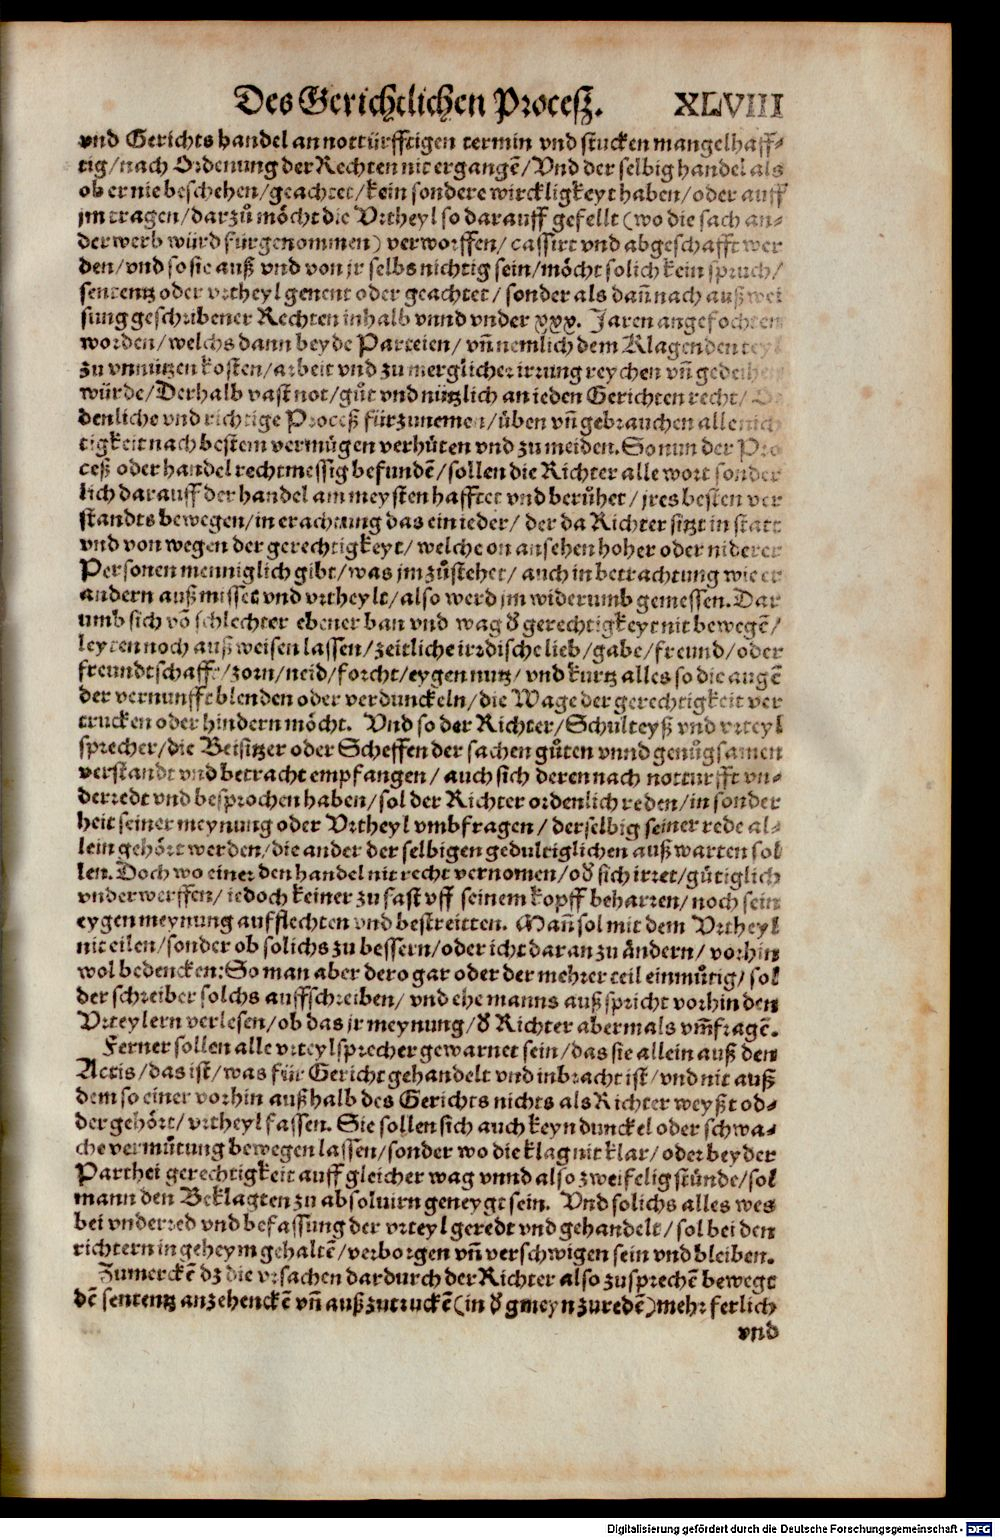 Des Gerichtlichen Procesz. XLVIII
vnd Gerichts handel an nottürfftigen termin vnd stucken mangelhaff-
tig/nach Ordenung der Rechten nit ergangē/Vnd der selbig handel als
ob er nie beschehen/geachtet/kein sondere wirckligkeyt haben/oder auff
jm tragen/darzů möcht die Vrtheyl so darauff gefellt (wo die sach an-
derwerb würd fürgenommen) verworffen/cassirt vnd abgeschafft wer
den/vnd so sie auß vnd von jr selbs nichtig sein/möcht solich kein spruch/
sententz oder vrtheyl genent oder geachtet/sonder als dañ nach außwei
sung geschribener Rechten inhalb vnnd vnder xxx. Jaren angefochten
worden/welchs dann beyde Parteien/vñ nemlich dem Klagenden teyl
zu vnnützen kosten/arbeit vnd zu merglicher irrung reychen vñ gedeihen
würde/Derhalb vast not/gůt vnd nützlich an ieden Gerichten recht/
denliche vnd richtige Proceß fürzunemen/üben vñ gebrauchen alle nich
tigkeit nach bestem vermügen verhüten vnd zu meiden. So nun der Pro
ceß oder handel rechtmessig befundē/sollen die Richter alle wort sonder
lich darauff der handel am meysten hafftet vnd berůhet/jres besten ver
standts bewegen/in erachtung das ein ieder/der da Richter sitzt in statt
vnd von wegen der gerechtigkeyt/welche on ansehen hoher oder niderer
Personen menniglich gibt/was jm zůstehet/auch in betrachtung wie er
andern auß misset vnd vrtheylt/also werd jm widerumb gemessen. Dar
umb sich vō schlechter ebener ban vnd wag ð gerechtigkeyt nit bewegē/
leyten noch auß weisen lassen/zeitliche irrdische lieb/gabe/freund/oder
freundtschafft/zorn/neid/forcht/eygen nutz/vnd kurtz alles so die augē
der vernunfft blenden oder verdunckeln/die Wage der gerechtigkeit ver
trucken oder hindern möcht. Vnd so der Richter/Schulteyß vnd vrteyl
sprecher/die Beisitzer oder Scheffen der sachen gůten vnnd genůgsamen
verstandt vnd betracht empfangen/auch sich deren nach notturfft vn-
derredt vnd besprochen haben/sol der Richter ordenlich reden/in sonder
heit seiner meynung oder Vrtheyl vmbfragen/derselbig seiner rede al-
lein gehört werden/die ander der selbigen gedultiglichen auß warten sol
len. Doch wo einer den handel nit recht vernomen/oð sich irret/gütiglich
vnderwerffen/iedoch keiner zu fast vff seinem kopff beharren/noch sein
eygen meynung aufflechten vnd bestreitten. Mañ sol mit dem Vrtheyl
nit eilen/sonder ob solichs zu bessern/oder icht daran zu ändern/vorhin
wol bedencken: So man aber dero gar oder der mehrer teil einmůtig/sol
der schreiber solchs auffschreiben/vnd ehe manns auß spricht vorhin den
Vrteylern verlesen/ob das jr meynung/ð Richter abermals vm̃fragē.
Ferner sollen alle vrteylsprecher gewarnet sein/das sie allein auß den
Actis/das ist/was für Gericht gehandelt vnd inbracht ist/vnd nit auß
dem so einer vorhin außhalb des Gerichts nichts als Richter weyßt od-
der gehört/vrtheyl fassen. Sie sollen sich auch keyn dunckel oder schwa-
che vermůtung bewegen lassen/sonder wo die klag nit klar/oder beyder
Parthei gerechtigkeit auff gleicher wag vnnd also zweifelig stünde/sol
mann den Beklagten zu absoluirn geneygt sein. Vnd solichs alles wes
bei vnderred vnd befassung der vrteyl geredt vnd gehandelt/sol bei den
richtern in geheym gehaltē/verborgen vñ verschwigen sein vnd bleiben.
Zumerckē dz die vrsachen dardurch der Richter also zusprechē bewegt
dē sententz anzehenckē vñ auß zutruckē (in ð gmeyn zuredē) mehr ferlich
vnd
Digitalisierung gefördert durch die Deutsche Forschungsgemeinschaft - DFG